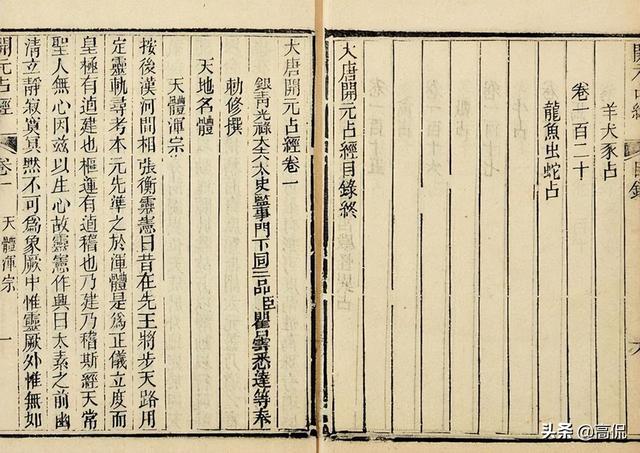 開元占經 目錄
羊犬豕占
卷一百二十
龍魚虫蛇占
大唐開元占經目錄終
大唐開元占經卷一
銀青光祿大夫太史監事門下同三品臣瞿曇悉達等奉
勅修撰
天地名體
天體渾宗
按後漢河間相張衡靈憲曰昔在先王將步天路用
定靈軌尋考本元先準之於渾體是爲正儀立度而
皇極有逌建也樞運有逌稽也乃建乃稽斯經天常
聖人無心因茲以生心故靈憲作興曰太素之前幽
清立靜寂寞冥黙不可爲象厥中惟靈厥外惟無如
開元占經 卷一 天體渾宗 一
头条 @高侃